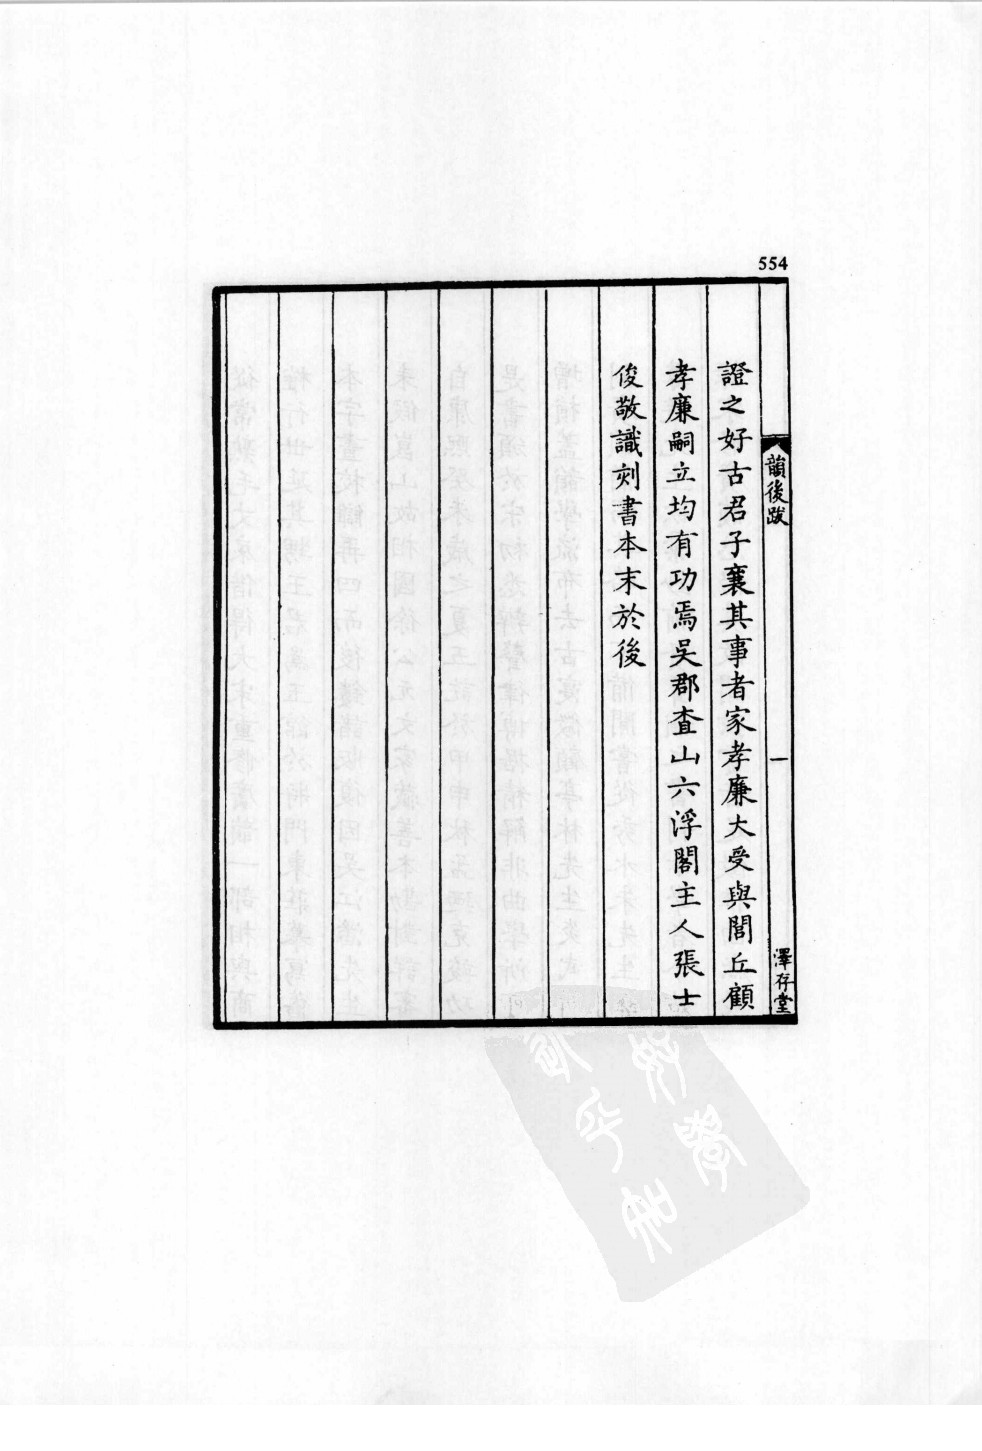 554
韻後跋
一
澤存堂
證之好古君子襄其事者家孝廉大受與閭丘顧
孝廉嗣立均有功焉吳郡查山六浮閣主人張士
俊敬識刻書本末於後